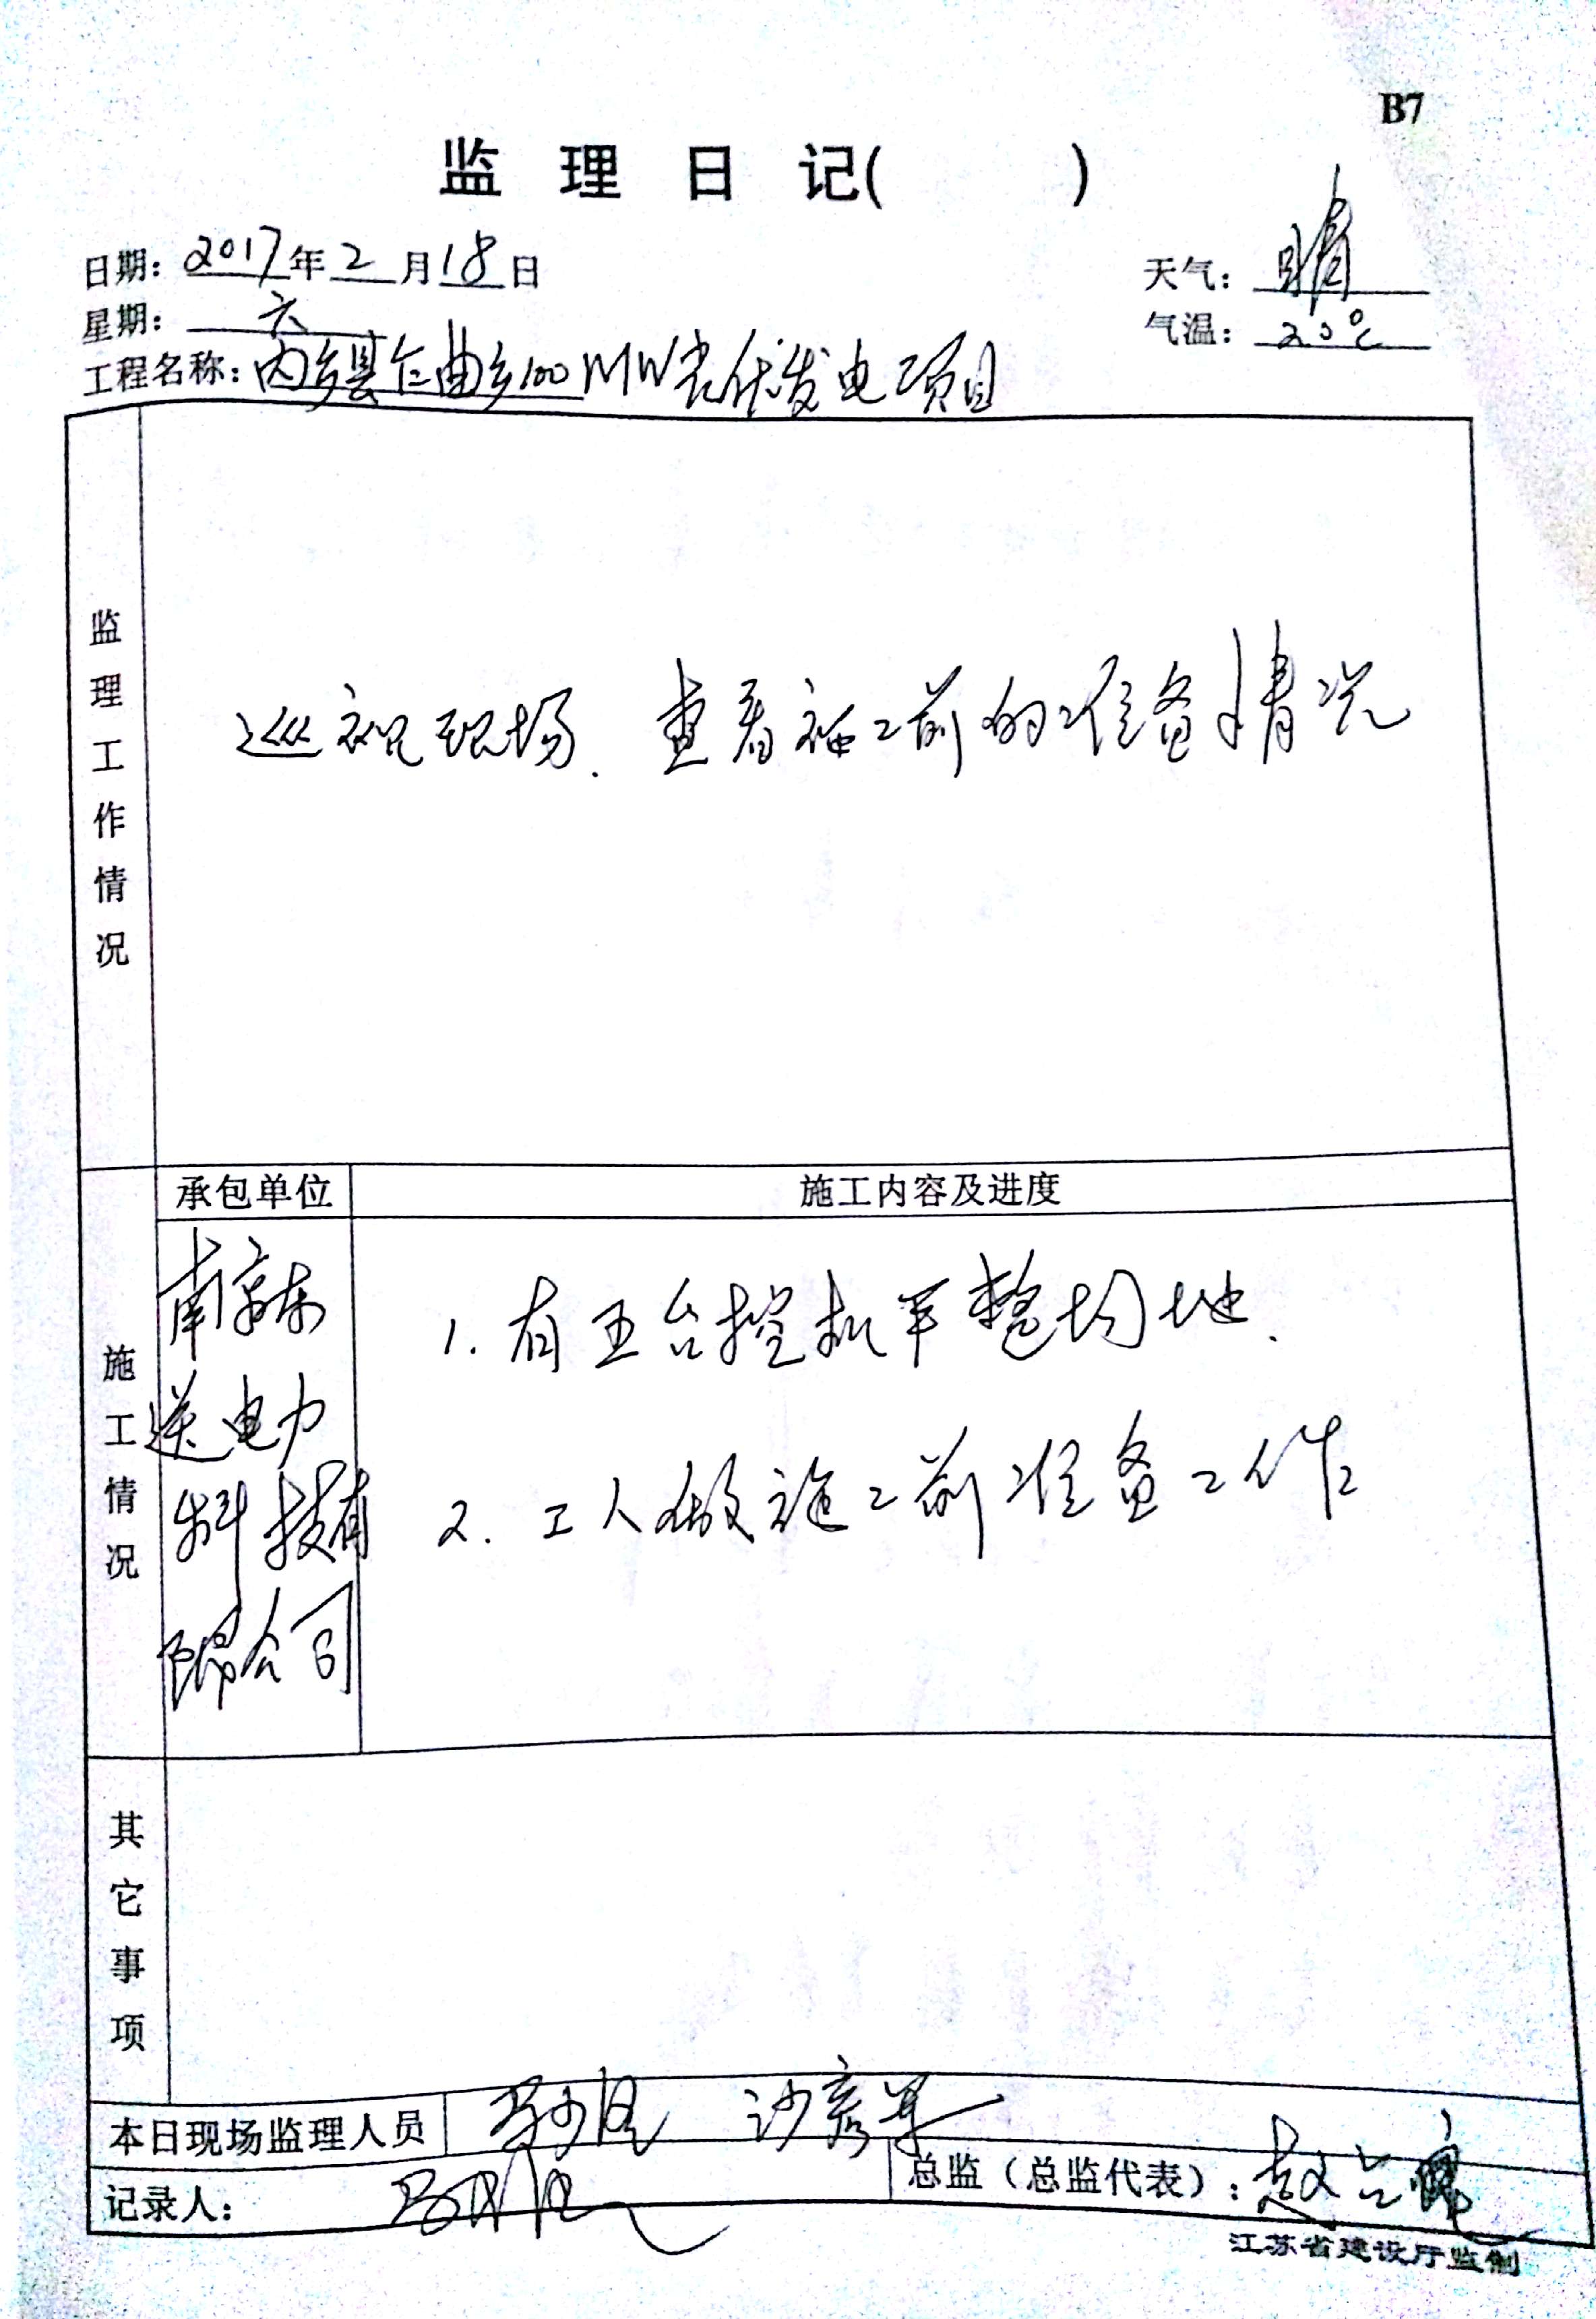 B7
监理日记( )
日期：2017年2月18日
天气：晴
星期：六
气温：20℃
工程名称：内乡县仁曲乡100MW光伏发电项目
监理工作情况
巡视现场、查看施工前的准备情况
承包单位
施工内容及进度
施工情况
南京
送电力
科技有
限公司
1. 有五台挖机平整场地、
2. 工人做施工前准备工作
其它事项
本日现场监理人员
记录人：
总监（总监代表）：赵
江苏省建设厅监制